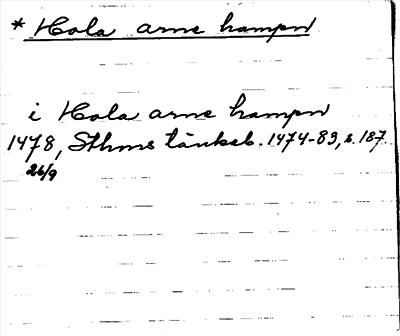 * Hola arne hampn
i Hola arne hampn
1478, Sthms tänkeb. 1474-83, s. 187.
26/9